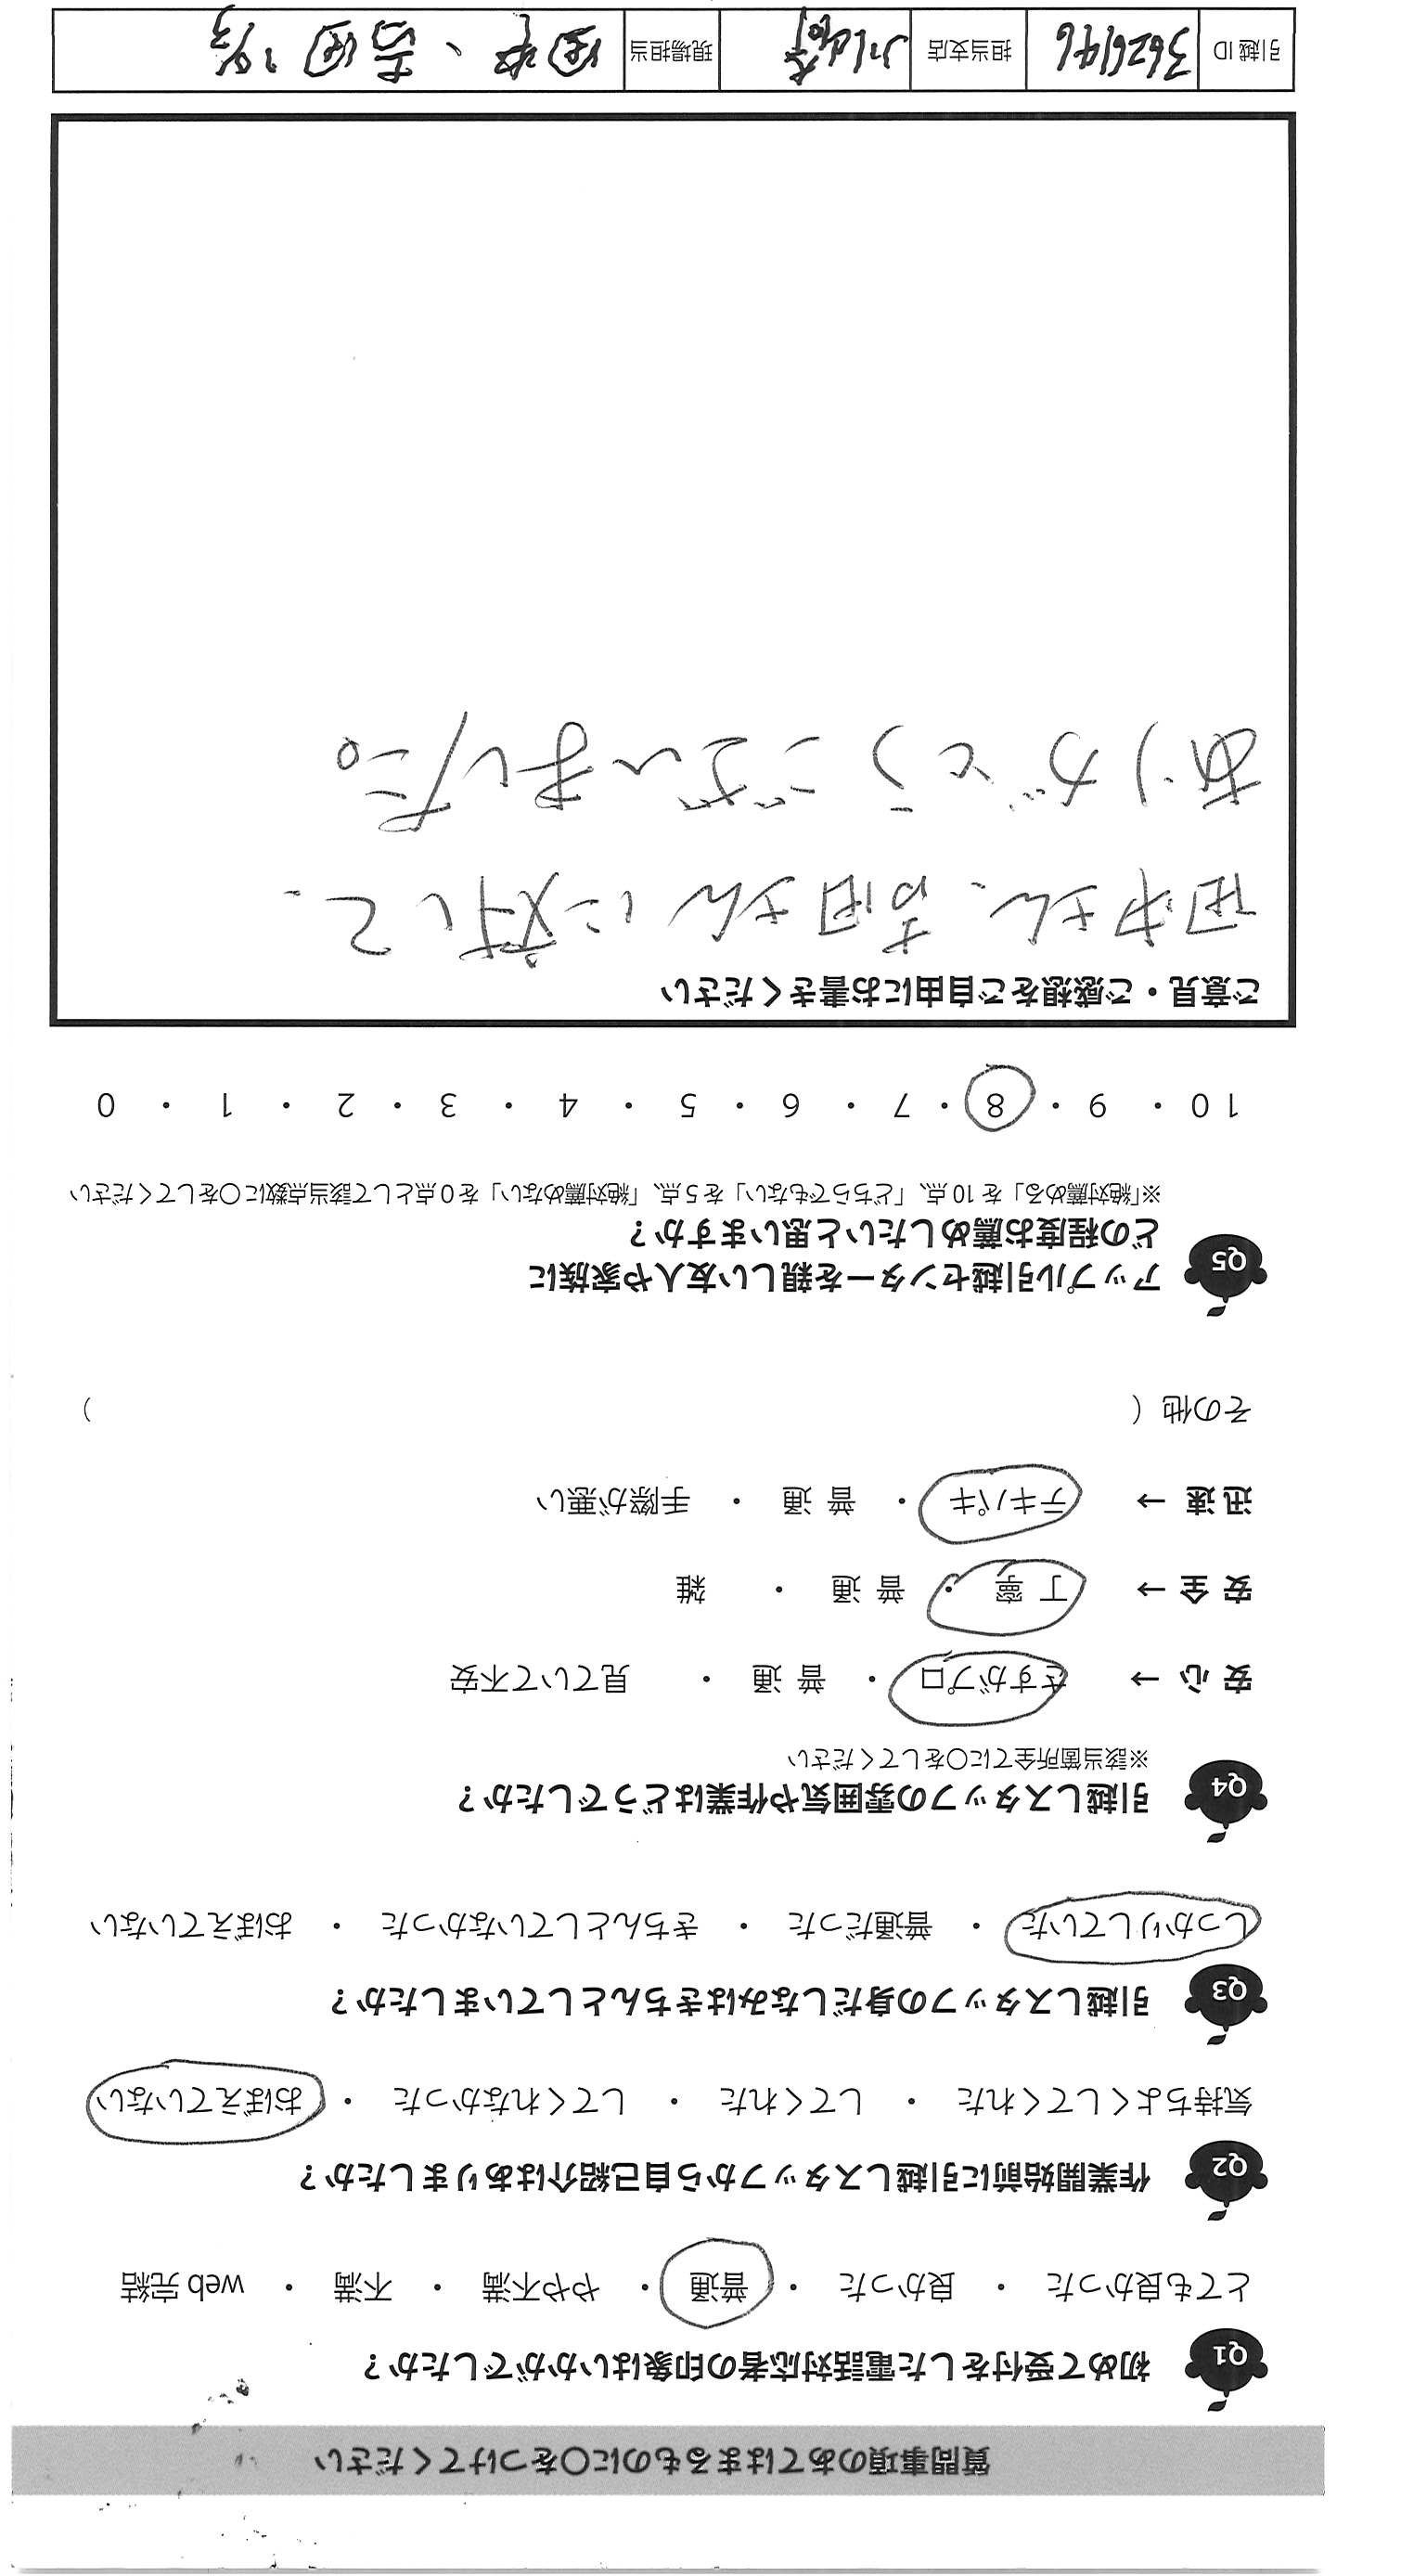 質問事項のあてはまるものに○をつけてください
Q1 初めて受付をした電話対応者の印象はいかがでしたか？
とても良かった ・ 良かった ・ 普通 ・ やや不満 ・ 不満 ・ web 完結
Q2 作業開始前に引越しスタッフから自己紹介はありましたか？
気持ちよくしてくれた ・ してくれた ・ してくれなかった ・ おぼえていない
Q3 引越しスタッフの身だしなみはきちんとしていましたか？
しっかりしていた ・ 普通だった ・ きちんとしていなかった ・ おぼえていない
Q4 引越しスタッフの雰囲気や作業はどうでしたか？
※該当箇所全てに○をしてください
安 心 → さすがプロ ・ 普 通 ・ 見ていて不安
安 全 → 丁 寧 ・ 普 通 ・ 雑
迅 速 → テキパキ ・ 普 通 ・ 手際が悪い
その他（ ）
Q5 アップル引越センターを親しい友人や家族に
どの程度お薦めしたいと思いますか？
※「絶対薦める」を 10 点、「どちらでもない」を 5 点、「絶対薦めない」を 0 点として該当点数に○をしてください
10 ・ 9 ・ 8 ・ 7 ・ 6 ・ 5 ・ 4 ・ 3 ・ 2 ・ 1 ・ 0
ご意見・ご感想をご自由にお書きください
田中さん、吉田さんに対して、
ありがとうございました。
引越 ID 3626146 担当支店 川崎 現場担当 田中、吉田